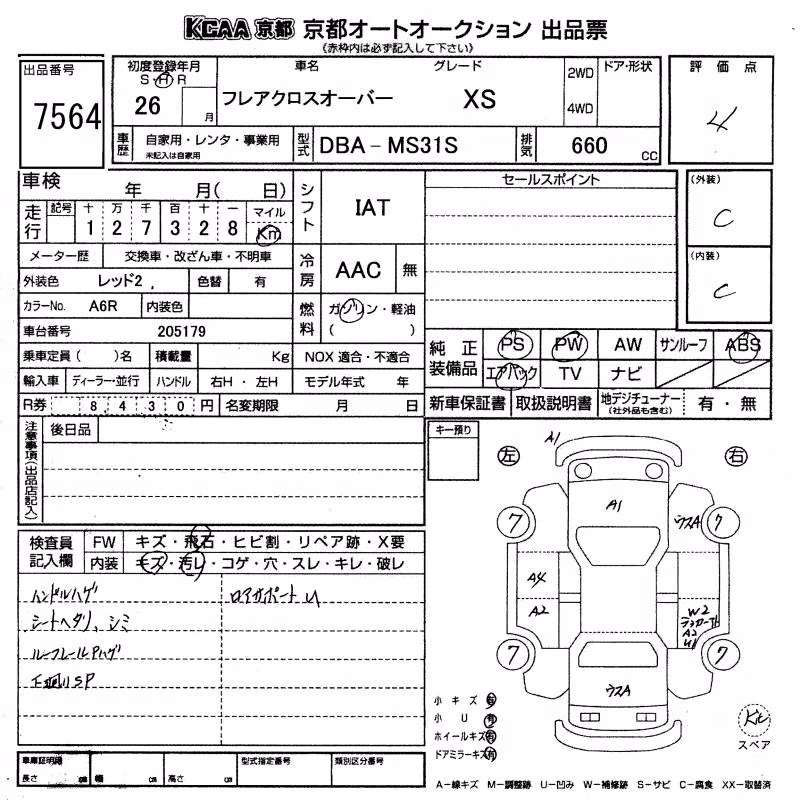 KCAA 京都 京都オートオークション 出品票
《赤枠内は必ず記入して下さい》
出品番号 7564
初度登録年月 S・H・R 26 月
車名 フレアクロスオーバー
グレード XS
2WD 4WD
ドア・形状
評価点 4
車歴 自家用・レンタ・事業用 未記入は自家用
型式 DBA-MS31S
排気 660 CC
車検 年 月( 日)
シフト IAT
セールスポイント
(外装) C
(内装) C
走行 記号 十 万 千 百 十 一 マイル
1 2 7 3 2 8 Km
メーター歴 交換車・改ざん車・不明車
冷房 AAC 無
外装色 レッド2 色替 有
カラーNo. A6R 内装色
燃料 ガソリン・軽油 ( )
車台番号 205179
乗車定員( )名 積載量 Kg NOX 適合・不適合
輸入車 ディーラー・並行 ハンドル 右H・左H モデル年式 年
純正装備品 PS PW AW サンルーフ ABS
エアバック TV ナビ
R券 8,430円 名変期限 月 日
新車保証書 取扱説明書 地デジチューナー (社外品も含む) 有・無
注意事項(出品店記入)
後日品
キー預り
左 右
A1
A1
ウスA
7 7
A4
A2
W2
A2
7 7
ウスA
検査員記入欄 FW キズ・飛石・ヒビ割・リペア跡・X要
内装 キズ・汚レ・コゲ・穴・スレ・キレ・破レ
ハンドルハゲ ロアサポートU
シートヘタリ、シミ
ルーフレールPハゲ
下廻りSP
小キズ 有
小U 有
ホイールキズ 有
ドアミラーキズ 有
Kit
スペア
車庫証明欄 長さ cm 幅 cm 高さ cm 型式指定番号 類別区分番号
A-線キズ M-調整跡 U-凹み W-補修跡 S-サビ C-腐食 XX-取替済